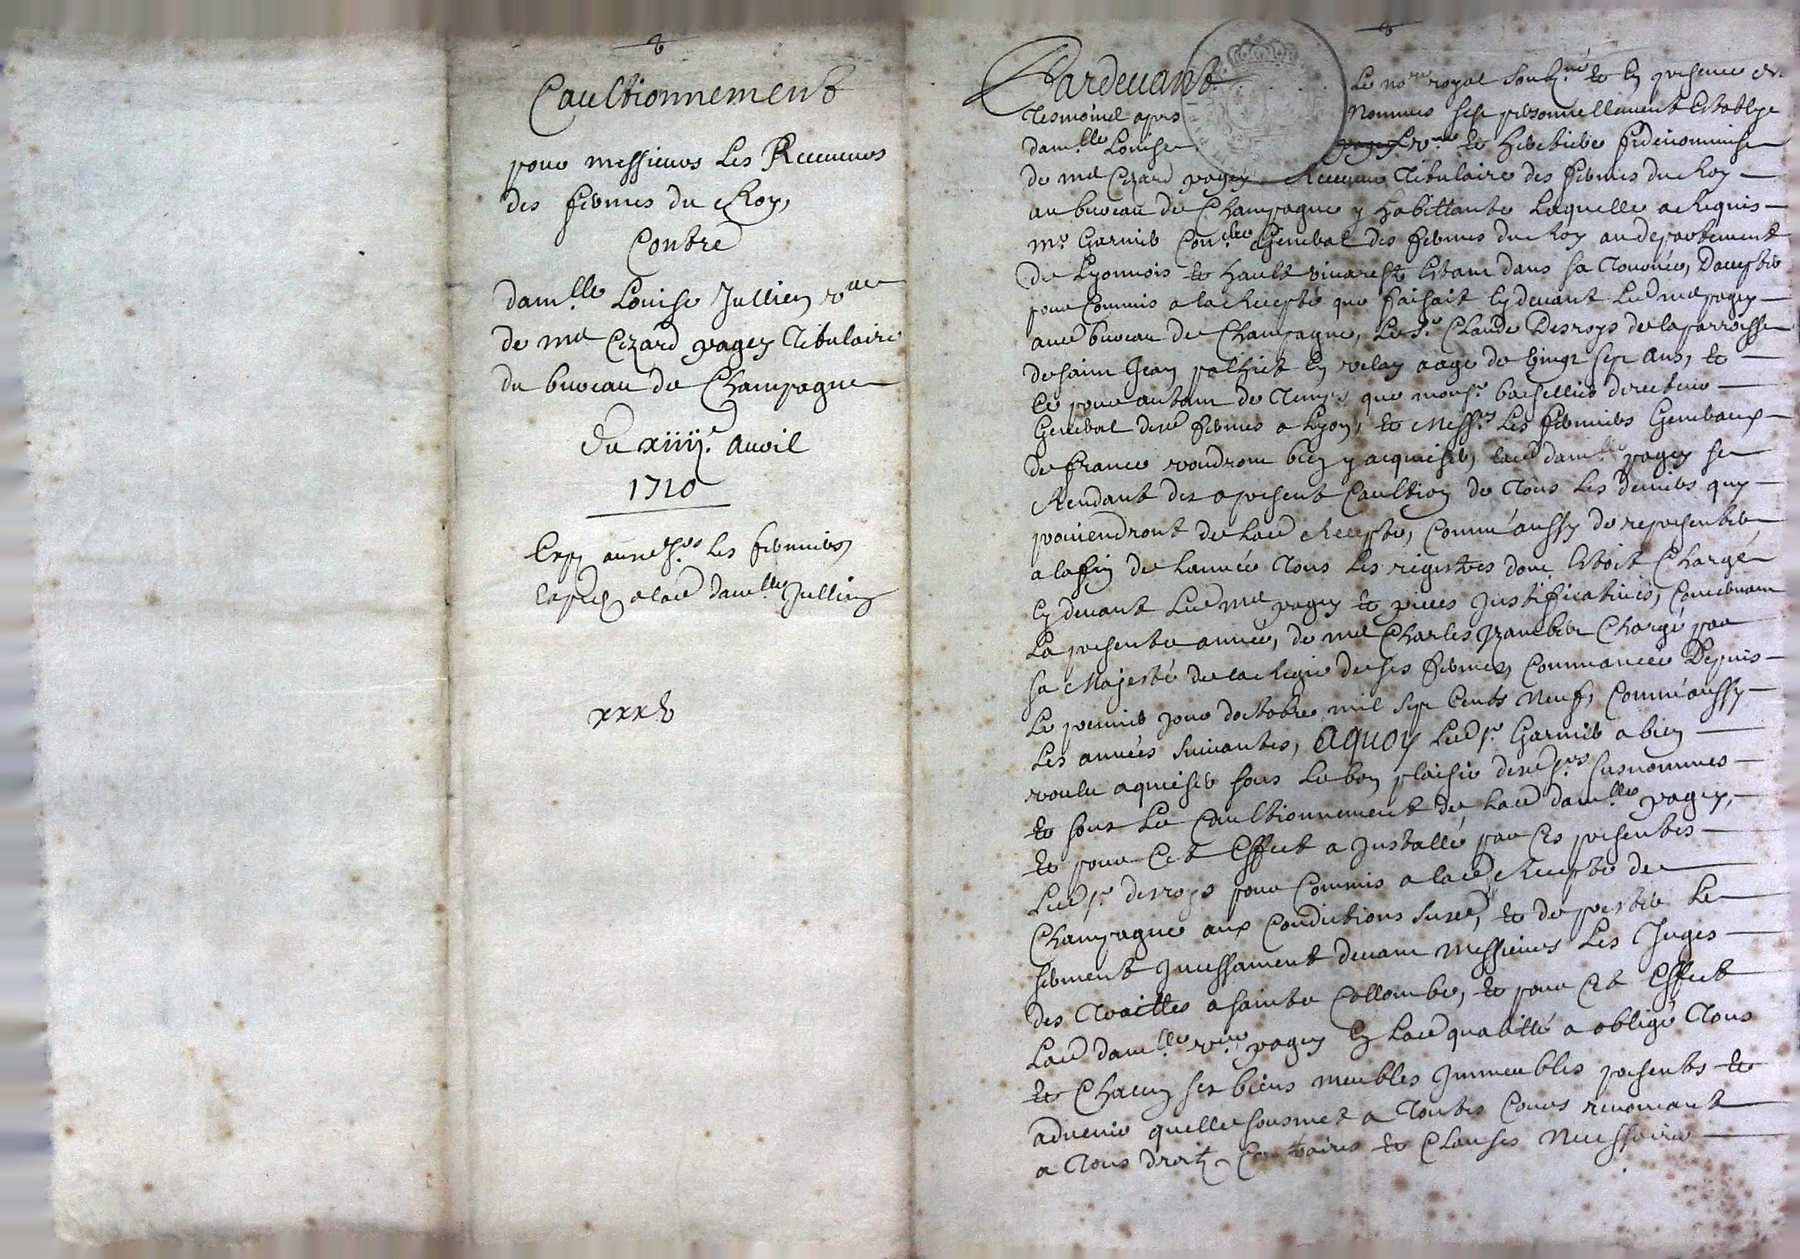 Caultionnement
pour messieurs Les Receveurs
des fermes du Roy,
Contre
dam.lle Louise Jullien v.ve
de me Cezard pagey Titulaire
du bureau de Champagne
du xiiii.e Avril
1710
Exp. aux d. srs les fermiers
exped. a lad dam.lle Jullien
xxx
Pardevant Le no.re royal soubz.né et En presence des
Tesmoins apres Nommes sest personnellement Establye
dam.lle Louise v.ve et heretiere fideicommise
de me Cezard pagey Receveur Titulaire des fermes du Roy
au bureau de Champagne y habittante Laquelle a Requis
Mr Garnier Con.lleur General des fermes du Roy au departement
de Lyonnois et hault vivarest Estant dans sa Tournée, Daccepter
pour Commis a la Recepte que faisait Cydevant Led me pagey
aud bureau de Champagne, Le Sr Claude Desroys de la parroisse
de saint Jean En velay aagé de vingt sept ans, et
ce pour autant de Temps que mons.r directeur
General desd fermes a Lyon, et Mess.rs Les fermiers Generaux
de france voudront bien y acquieser, lad dam.lle pagey se
Rendant des apresent Caultion de Tous Les deniers quy
proviendront de Lad Recepte, Comm'aussy de representer
a la fin de Lannée Tous Les registres dont Estoit Chargé
Cydevant Led me pagey et pieces Justificatives, Concernant
La presente année, de me Charles Chargé par
sa Majesté de la Regie de ses fermes, Commancée Depuis
Le premier jour doctobre mil sept Cents Neuf, Comm'aussy
Les années suivantes, Aquoy Led Sr Garnier a bien
voulu aquieser sous Le bon plaisir desd Srs susnommes
et sous Le Caultionnement de Lad dam.lle pagey,
et pour Cet Effect a Installé par Ces presentes
Led Sr desroys pour Commis a lad Recepte de
Champagne aux Condictions susd, et de prester Le
serment Incessament devant Messieurs Les Juges
des Traittes a Sainte Collombe, et pour Cet Effect
Lad dam.lle v.ve pagey En Lad qualitté a obligé Tous
et Chacun ses biens meubles Immeubles presents et
advenir quelle sousmet a Toutes Cours renonçant
a Tous droitz Contraires et Clauses Necessaires